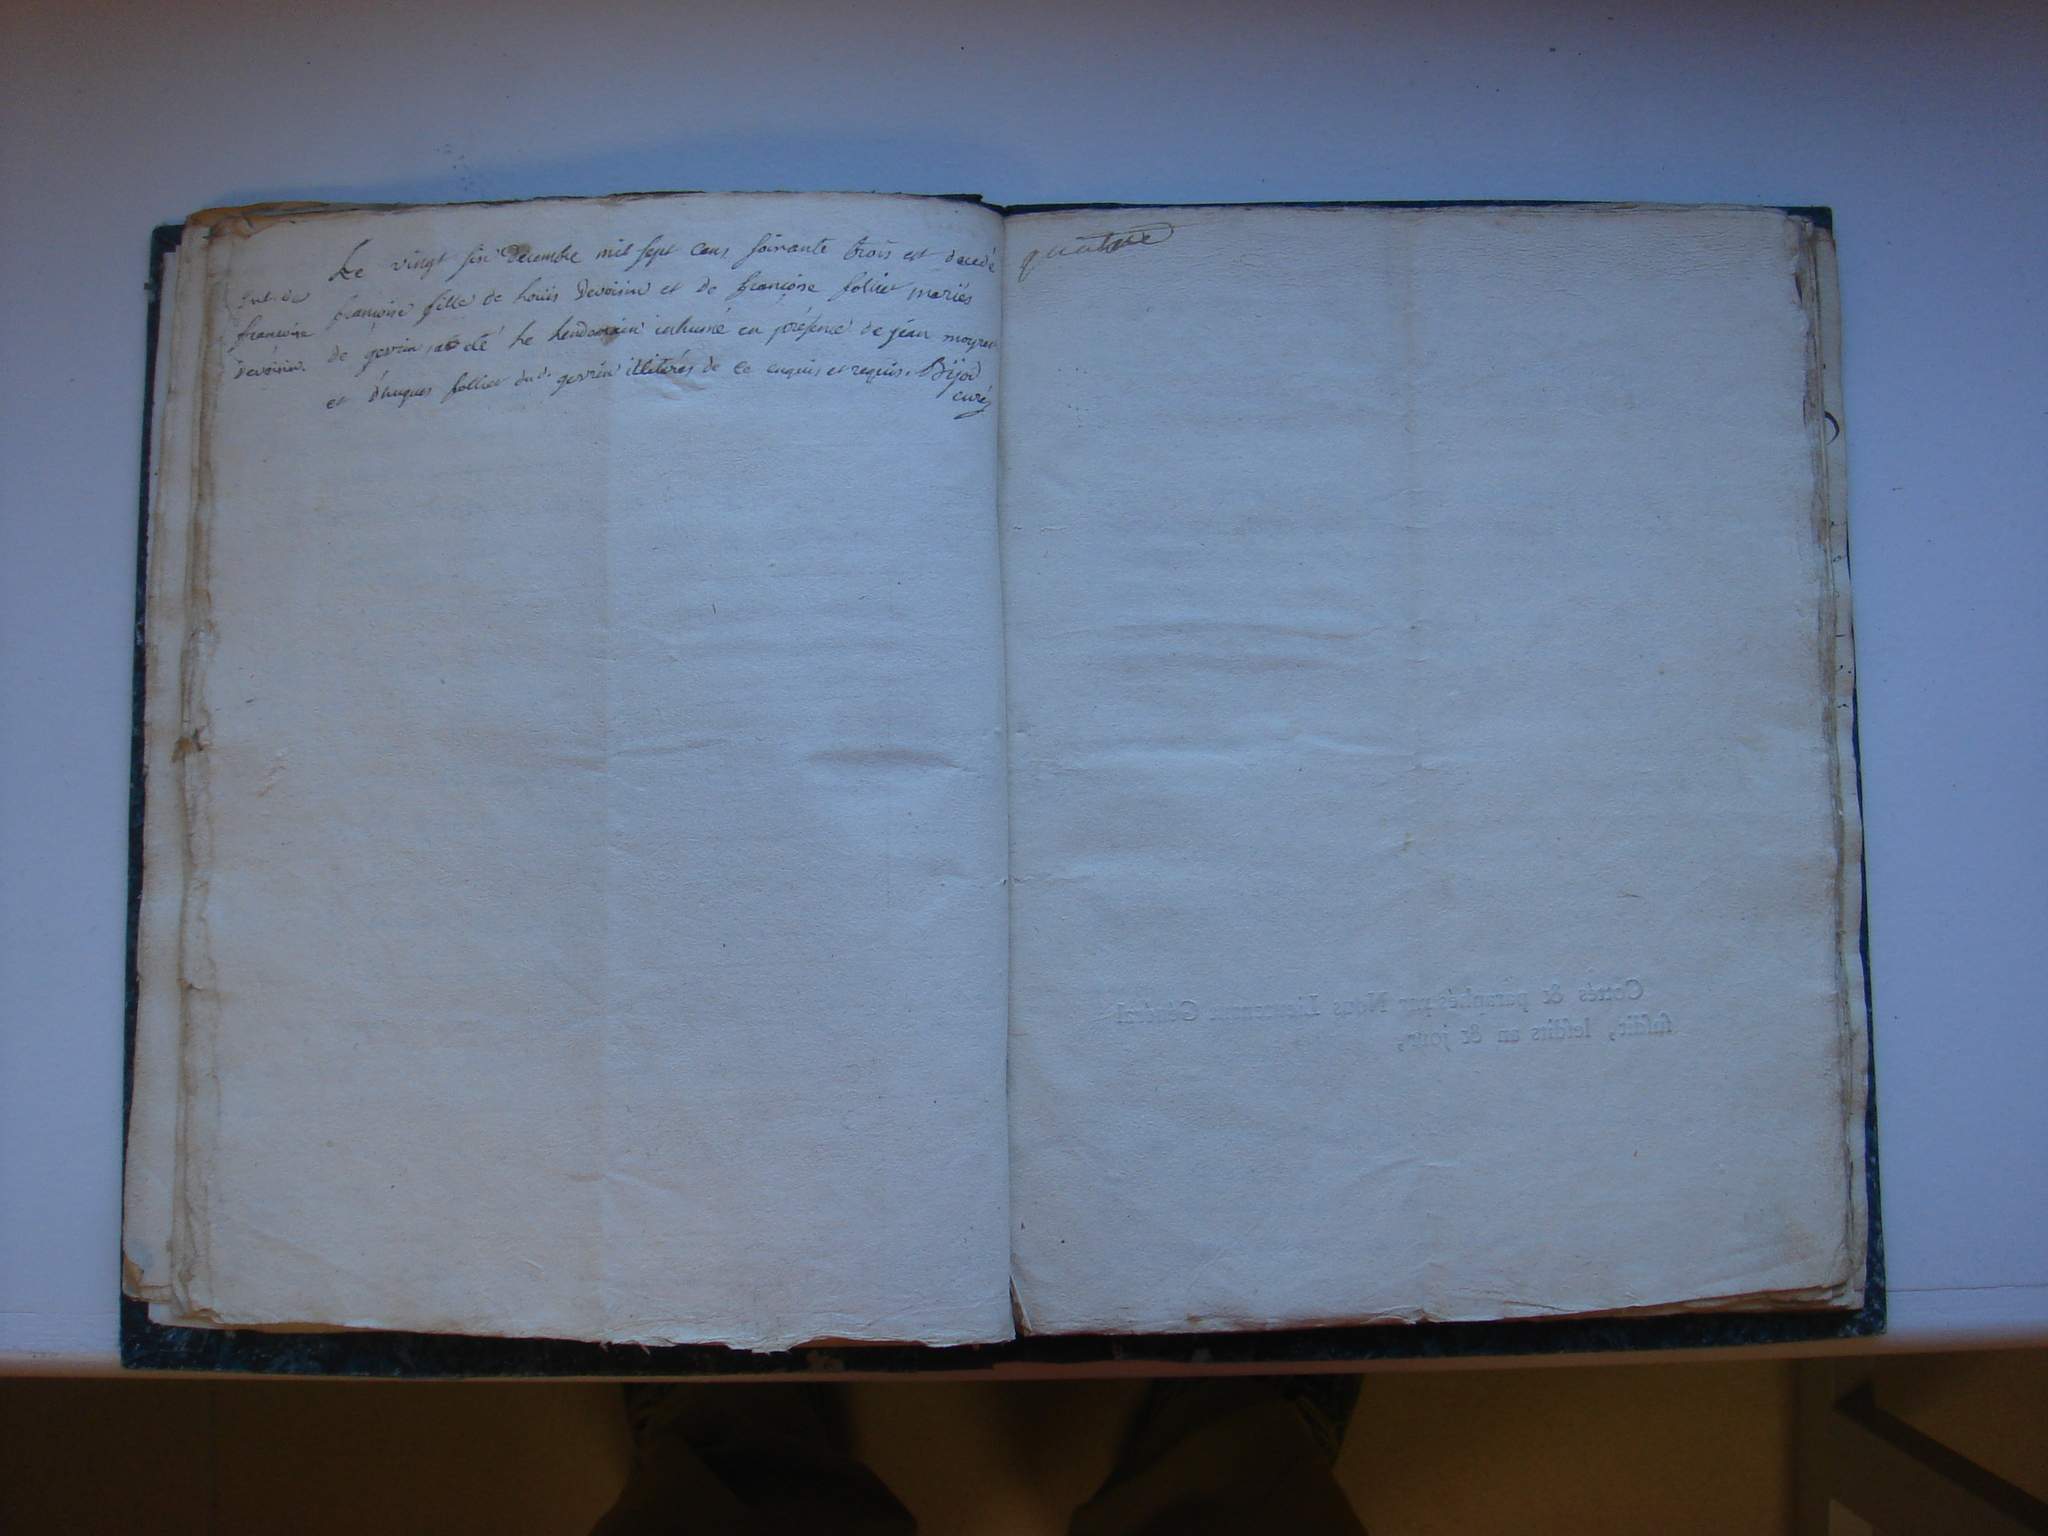 Le vingt six Decembre mil sept cens soixante trois est decedé
françoise fille de Louïs Devoisin et de françoise follier mariés
de gevrin, a été le lendemain inhumé en présence de jean moyret
et d'hugues follier dud. gevrin illiterés de ce enquis et requis. Bijod
curé
Ent. de
françoise
devoisin.
quatre
Cottés & paraphés par Nous Lieutenant Général
susdit, lesdits an & jour,